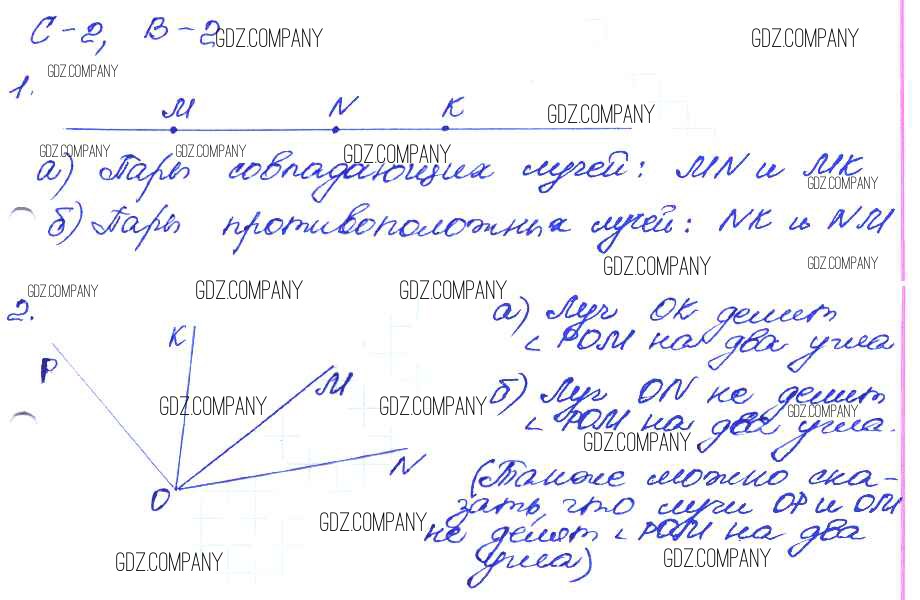 С-2, В-2
GDZ.COMPANY GDZ.COMPANY
GDZ.COMPANY
1.
M N K
GDZ.COMPANY
GDZ.COMPANY GDZ.COMPANY GDZ.COMPANY
а) Пары совпадающих лучей: MN и MK
GDZ.COMPANY
б) Пары противоположных лучей: NK и NM
GDZ.COMPANY GDZ.COMPANY
GDZ.COMPANY GDZ.COMPANY GDZ.COMPANY
2.
P K M N O
а) Луч OK делит
∠ POM на два угла
б) Луч ON не делит
∠ POM на два угла.
GDZ.COMPANY GDZ.COMPANY GDZ.COMPANY
GDZ.COMPANY
(Также можно ска-
зать, что лучи OP и OM
не делят ∠ POM на два
угла)
GDZ.COMPANY
GDZ.COMPANY GDZ.COMPANY